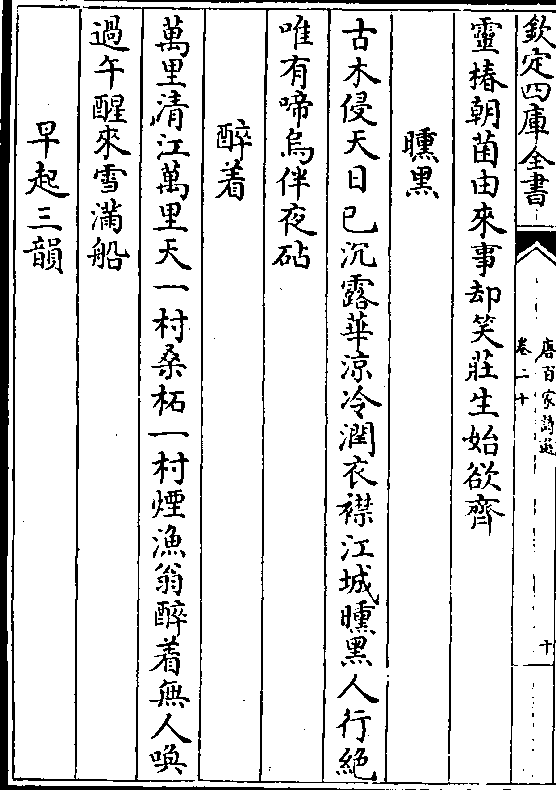 欽定四庫全書
唐百家詩選
卷二十
十
靈椿朝菌由來事却笑莊生始欲齊
曛黑
古木侵天日已沉露華涼冷潤衣襟江城曛黑人行絶
唯有啼烏伴夜砧
醉着
萬里清江萬里天一村桑柘一村煙漁翁醉着無人喚
過午醒來雪滿船
早起三韻